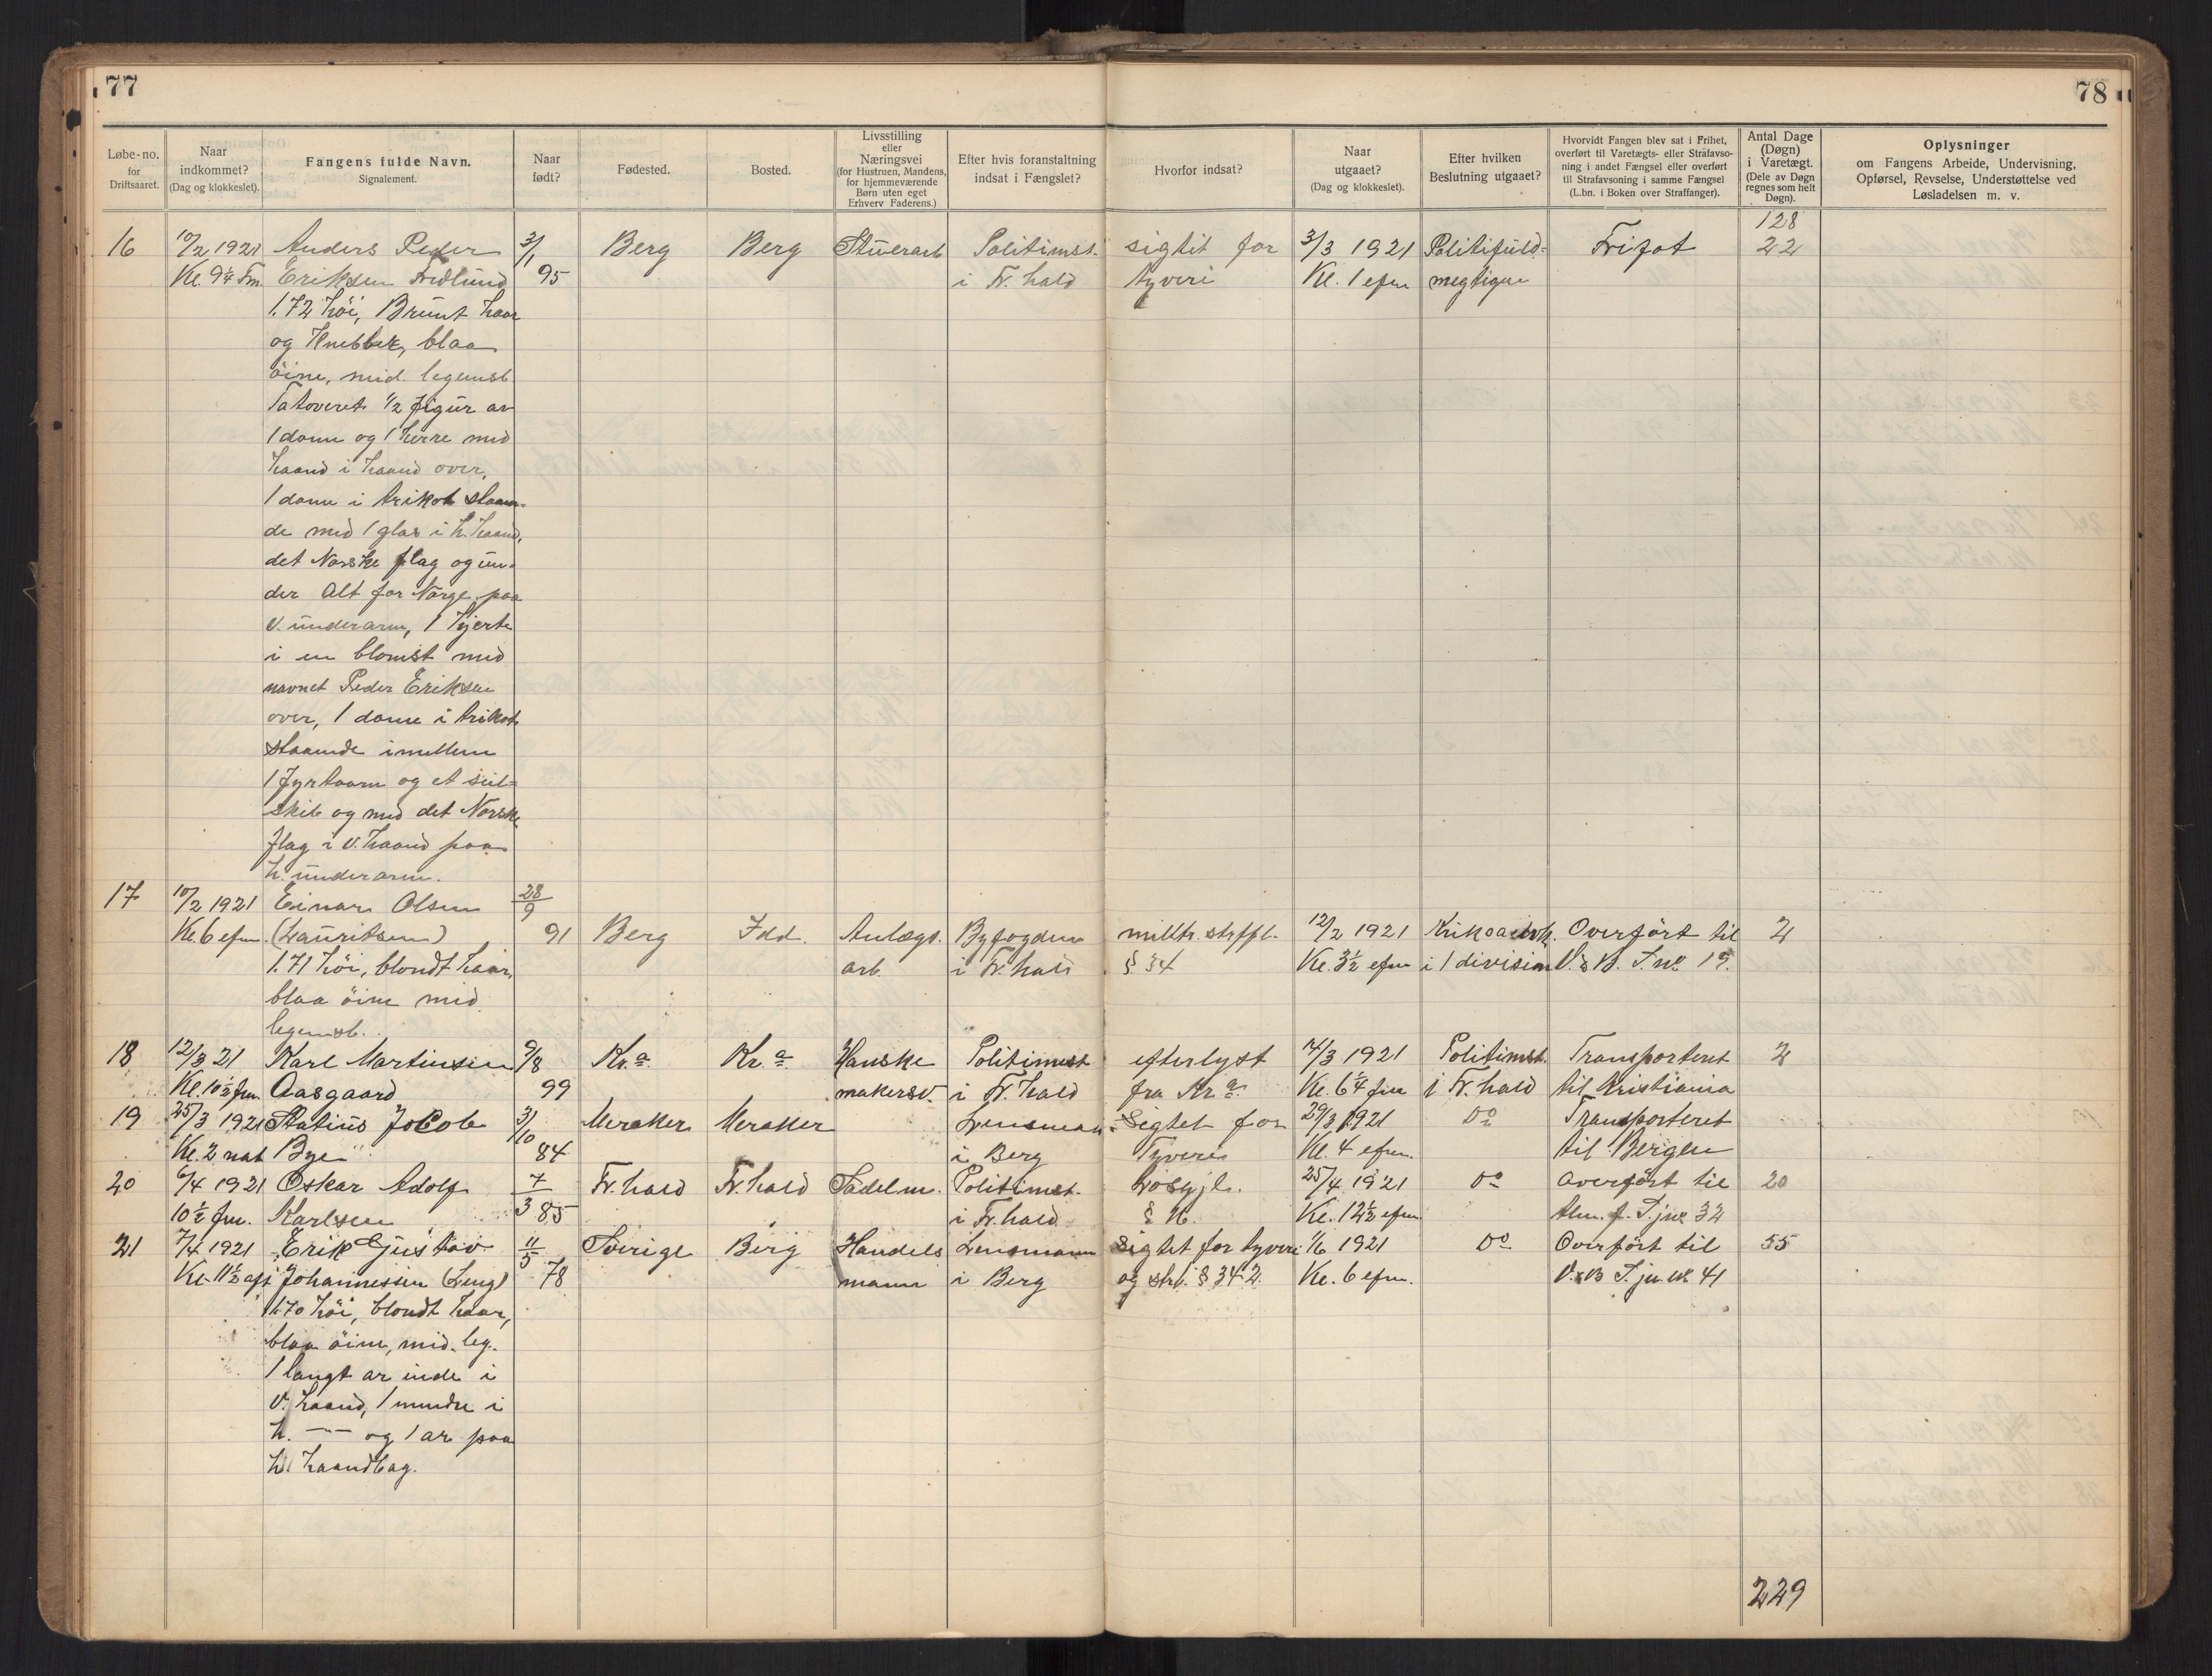 77
78
Løbe-no.
for
Driftsaaret.
Naar
indkommet?
(Dag og klokkeslet).
Fangens fulde Navn.
Signalement.
Naar
født?
Fødested.
Bosted.
Livsstilling
eller
Næringsvei
(for Hustruen, Mandens,
for hjemmeværende
Børn uten eget
Erhverv Faderens.)
Efter hvis foranstaltning
indsat i Fængslet?
Hvorfor indsat?
Naar
utgaaet?
(Dag og klokkeslet).
Efter hvilken
Beslutning utgaaet?
Hvorvidt Fangen blev sat i Frihet,
overført til Varetægts- eller Strafavso-
ning i andet Fængsel eller overført
til Strafavsoning i samme Fængsel
(L.bn. i Boken over Straffanger).
Antal Dage
(Døgn)
i Varetægt.
(Dele av Døgn
regnes som helt
Døgn).
Oplysninger
om Fangens Arbeide, Undervisning,
Opførsel, Revselse, Understøttelse ved
Løsladelsen m. v.
128
16 10/2 1921 Anders Peder 3/1 Berg Berg Stuerarb Politimst. sigtit for 3/3 1921 Politifuld- Frifot 22
Kl. 9¼ Fm. Eriksen 95 i Fr. hald tyveri Kl. 1 efm megtigen
1.72 höi, Brunt haar
og Knebbek, blaa
öine, mid. legemsb
Tatoveret ½ figur av
1 dame og 1 herre med
haand i haand over,
1 dame i trikot staaen-
de med 1 glas i h. haand,
det Norske flag og un-
der Alt for Norge, paa
v. underarm, 1 hjerte
i en blomst med
navnet Peder Eriksen
over, 1 dame i trikot
staaende imellem
1 fyrtaarn og et seil-
skib og med det Norske
flag i v. haand paa
h. underarm.
17 10/2 1921 Einar Olsen 28/9
Kl. 6 efm. (Lauritsen) 91 Berg Idd. Anlægs. Byfogden militr. strfpl. 12/2 1921 Overført til 2
1.71 höi, blondt haar, arb. i Fr. hald § 34 Kl. 3½ efm i 1 division V. & B. J. nr 19.
blaa öine mid.
legemsb.
18 12/3 21 Karl Martinsen 9/8 Kr.a Kr.a Hanske Politimest efterlyst 14/3 1921 Politimst. Transporteret 2
Kl. 10½ fm. Aasgaard 99 makersv. i Fr. hald fra Kr.a Kl. 6¼ fm i Fr. hald til Kristiania
19 25/3 1921 Statius Jacob 3/10 Meraker Meraker Lensman Sigtet for 29/3 1921 Do Transporteret
Kl. 2 nat Bye 84 i Berg Tyveri Kl. 4 efm. til Bergen
20 6/4 1921 Oskar Adolf 7/3 Fr. hald Fr. hald Sadelm. Politimst. Løsgjl. 25/4 1921 Do Overført til 20
10½ fm. Karlsen 85 i Fr. hald § 16. Kl. 12½ efm. J. jnr 32
21 7/4 1921 Erik Gustav 11/5 Sverige Berg Handels Lensmann Sigtet for tyveri 1/6 1921 Do Overført til 55
Kl. 11½ aft Johannessen (Leng) 78 mann i Berg og strl. § 342. Kl. 6 efm. V. & B J. jn. nr 41
1.70 höi, blondt haar,
blaa öine, mid. leg.
1 langt ar inde i
v. haand, 1 mindre i
h. — og 1 ar paa
h. haandbag.
229